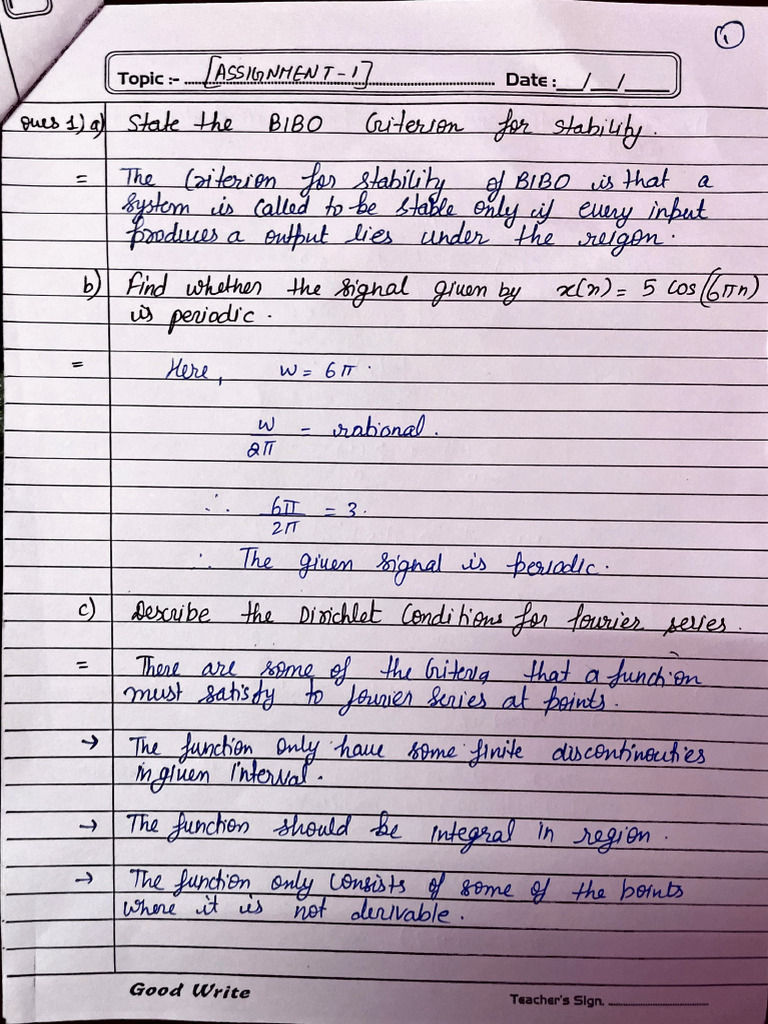 1
Topic :- [ASSIGNMENT-1] Date : __/__/____
Ques 1) a) State the BIBO Criterion for stability.
= The Criterion for stability of BIBO is that a
system is called to be stable only if every input
produces a output lies under the reigon.
b) Find whether the signal given by x(n) = 5 cos(6πn)
is periodic.
= Here, w = 6π.
w/2π = rational.
∴ 6π/2π = 3.
∴ The given signal is periodic.
c) Describe the Dirichlet Conditions for fourier series.
= There are some of the Criteria that a function
must satisfy to fourier series at points.
→ The function only have some finite discontinouties
in given interval.
→ The function should be integral in region.
→ The function only consists of some of the points
where it is not derivable.
Good Write Teacher's Sign.